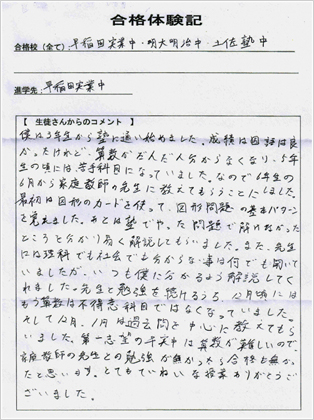 合格体験記
合格校(全て): 早稲田実業中・明大明治中・土佐塾中
進学先: 早稲田実業中
【 生徒さんからのコメント 】
僕は3年生から塾に通い始めました。成績は国語は良
かったけれど、算数がだんだん分からなくなり、5年生
の頃には、苦手科目になっていました。なので6年生の
6月から家庭教師の先生に教えてもらうことにしました。
最初は図形のカードを使って、図形問題の基本パターン
を覚えました。あとは塾でやった問題で解けなかった
ところを分かり易く解説してもらいました。また、先生
には理科でも社会でも分からない事は何でも聞いて
いましたが、いつも僕に分かるよう解説してく
れました。先生と勉強を続けるうち、12月頃には
もう算数は不得意科目ではなくなっていました。
そして12月、1月は過去問を中心に教えてもら
いました。第一志望の早実中は算数が難しいので、
家庭教師の先生との勉強が無かったら合格も無かっ
たと思います。とてもていねいな授業ありがとうご
ざいました。